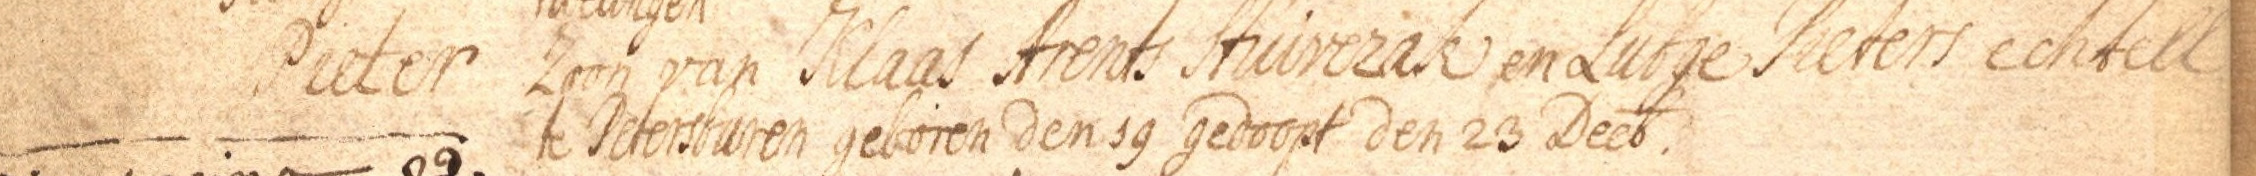 Pieter Zoon van Klaas Arents Stuivezak en Lutge Pieters echtell
te Pietersburen geboren den 19 gedoopt den 23 Decb.
89.